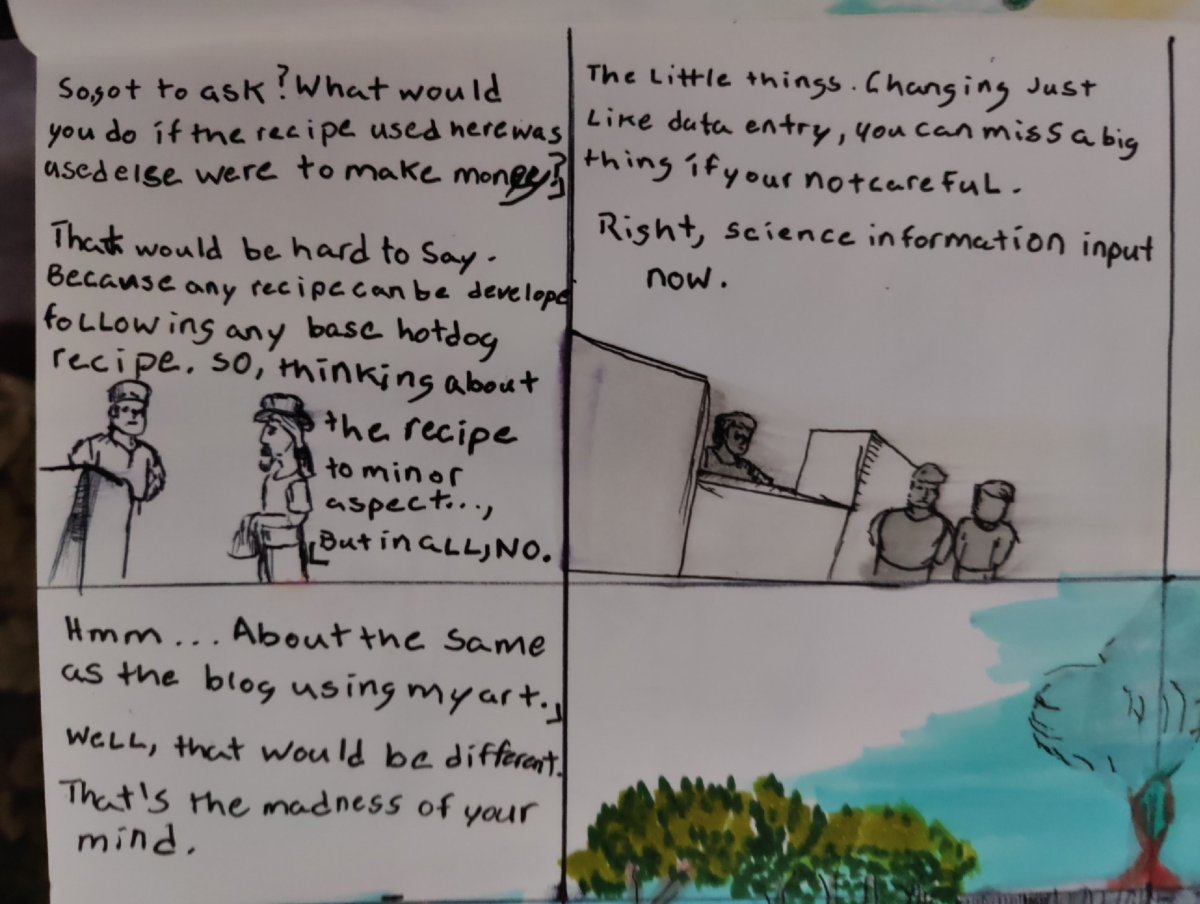 So,got to ask? What would
you do if the recipe used here was
used else were to make money?
That would be hard to say.
Because any recipe can be develope
following any base hotdog
recipe. So, thinking about
the recipe
to minor
aspect...,
But in all, NO.
The Little things. Changing Just
Like data entry, you can miss a big
thing if your not careful.
Right, science information input
now.
Hmm... About the same
as the blog using my art.
Well, that would be different.
That's the madness of your
mind.